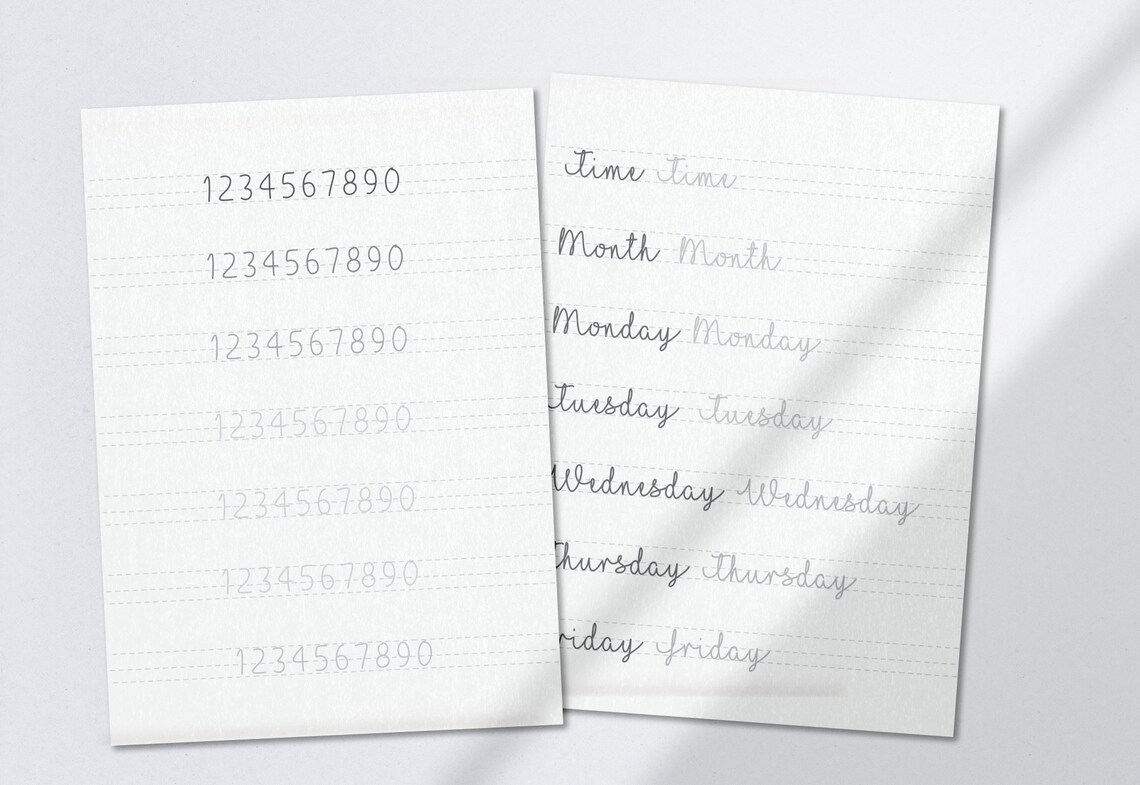 1234567890
1234567890
1234567890
1234567890
1234567890
1234567890
1234567890
Time Time
Month Month
Monday Monday
Tuesday Tuesday
Wednesday Wednesday
Thursday Thursday
riday friday